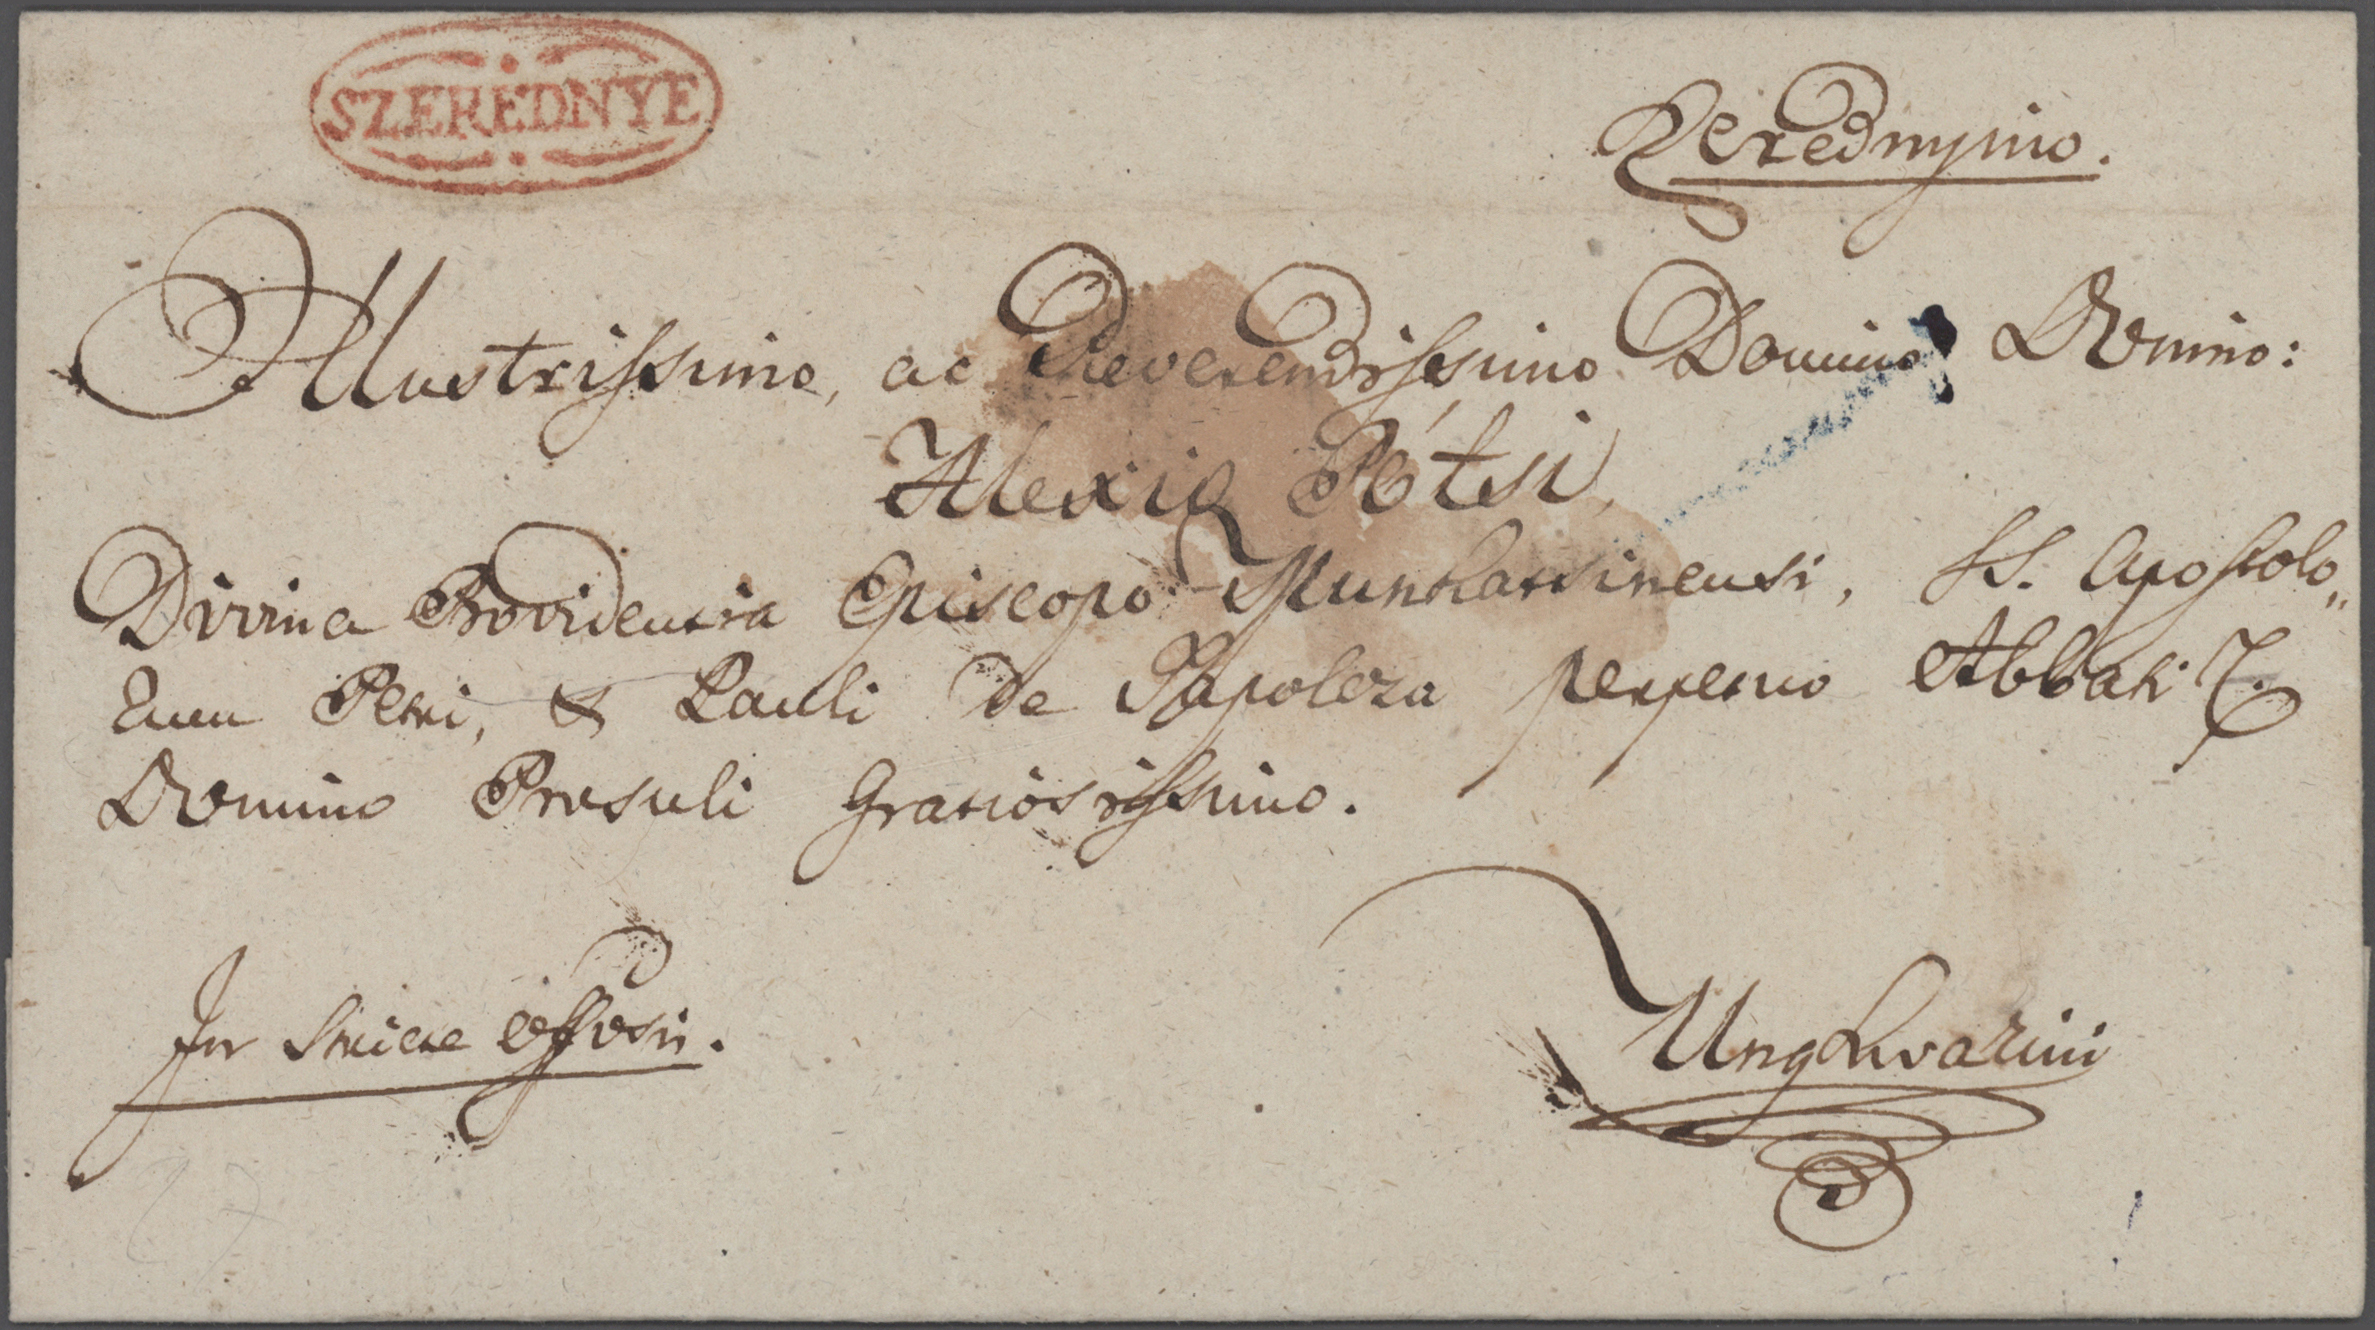 SZEREDNYE
Szerednyino.
Illustrissimo, ac Reverendissimo Domino Domino:
Alexio Pótsi
Divina Providentia Episcopo Munkatsinensi, SS. Apostolo„
rum Petri, & Pauli de Tapolcza perpetuo Abbati
Domino Praesuli Gratiosissimo.
officiosi.
Unghvarini